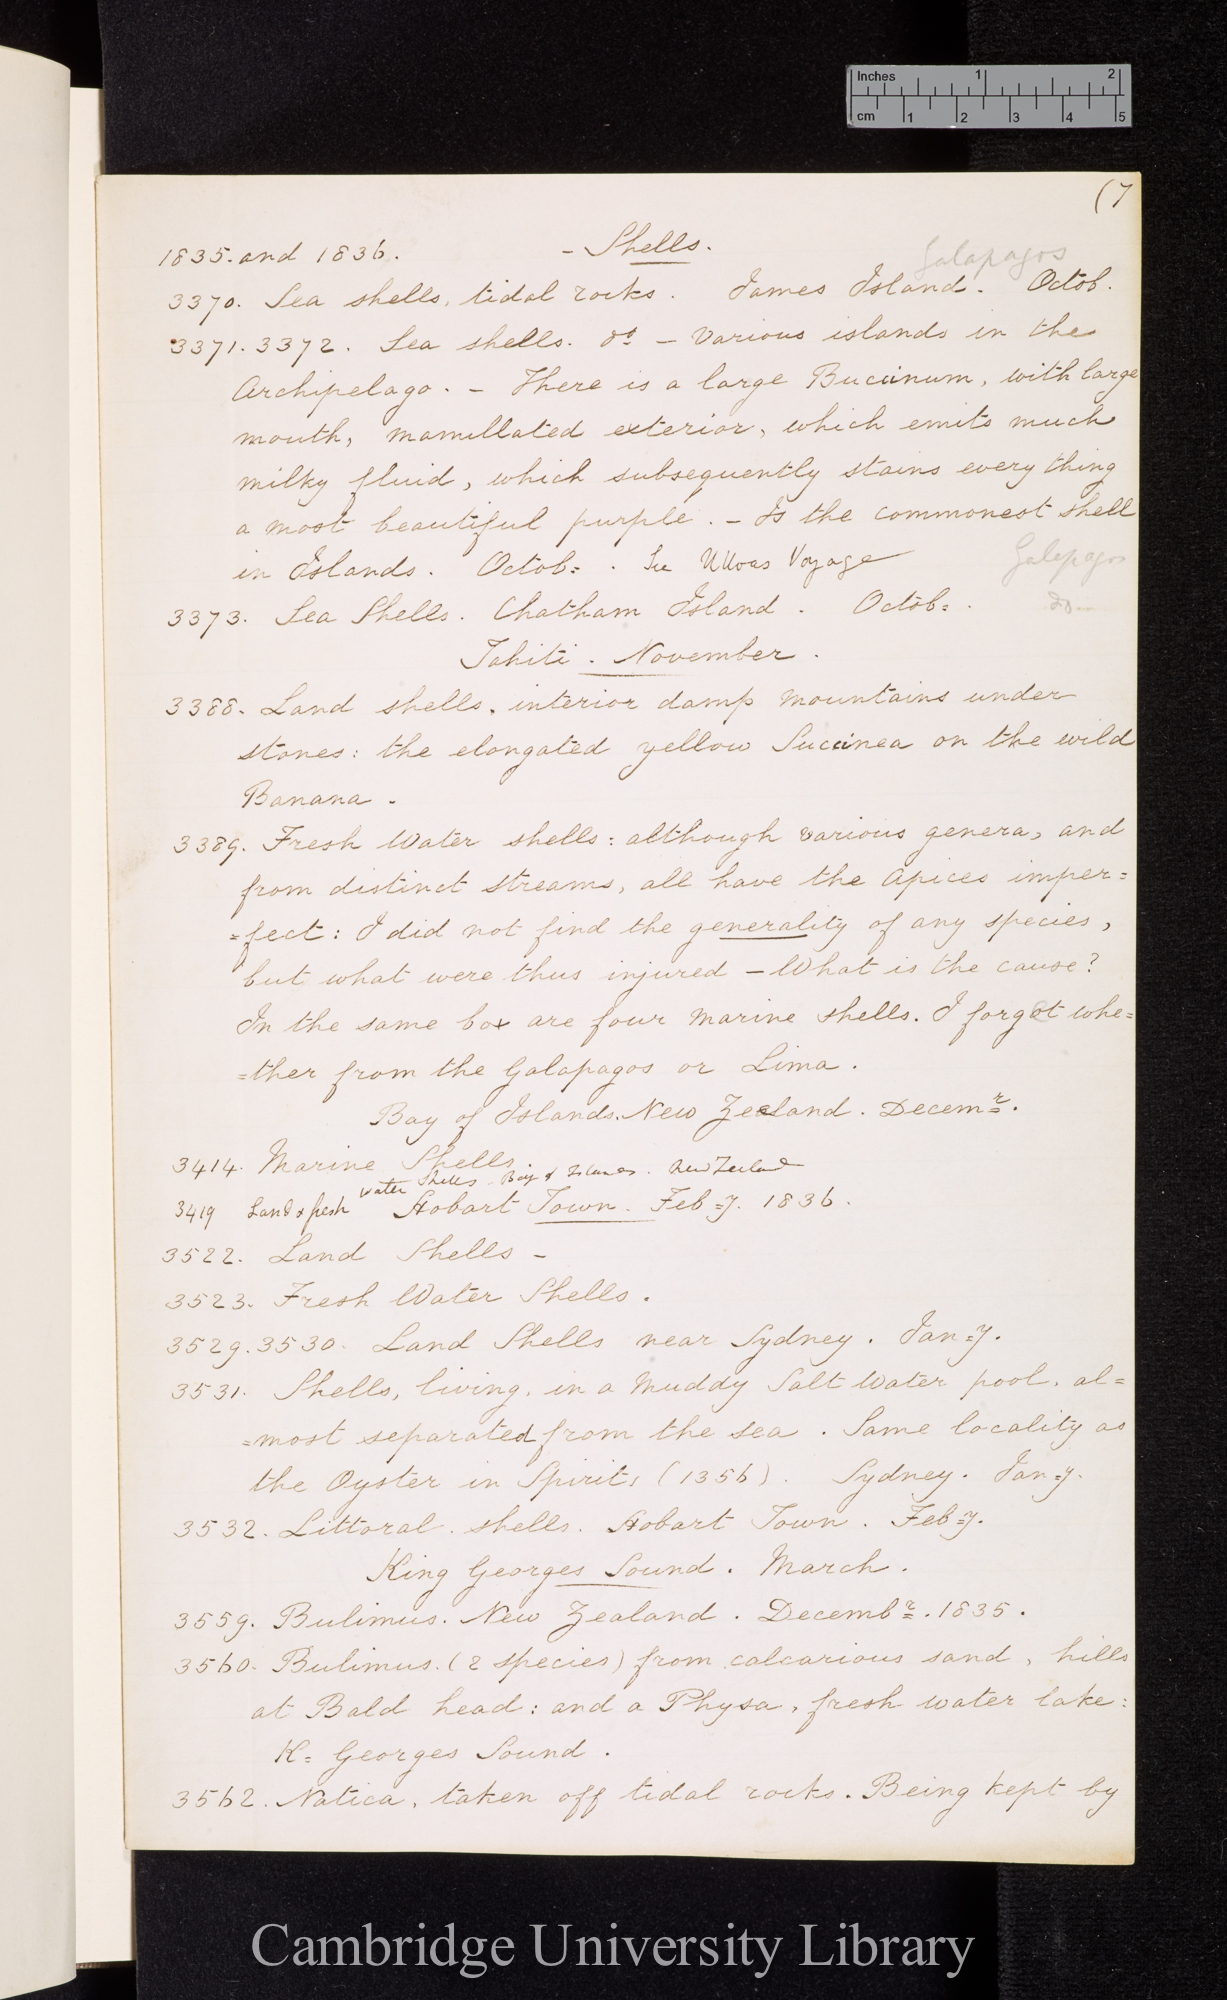 Inches 1 2
cm 1 2 3 4 5
(7
1835. and 1836. - Shells.
Galapagos
3370. Sea shells, tidal rocks. James Island. Octob.
3371. 3372. Sea shells. do - Various islands in the
Archipelago. - There is a large Buccinum, with large
mouth, mamillated exterior, which emits much
milky fluid, which subsequently stains every thing
a most beautiful purple. - Is the commonest shell
in Islands. Octob=. See Ulloas Voyage
Galapagos
3373. Sea Shells. Chatham Island. Octob=. do
Tahiti. November.
3388. Land shells, interior damp mountains under
stones: the elongated yellow Succinea on the wild
Banana.
3389. Fresh Water shells: although various genera, and
from distinct streams, all have the apices imper=
=fect: I did not find the generality of any species,
but what were thus injured - What is the cause?
In the same box are four marine shells. I forgot whe=
=ther from the Galapagos or Lima.
Bay of Islands. New Zealand. Decemr.
3414. Marine Shells
3419 Land & fresh water Shells Bay of Islands. New Zealand
Hobart Town. Feb=y. 1836.
3522. Land Shells -
3523. Fresh Water Shells.
3529. 3530. Land Shells near Sydney. Jan=y.
3531. Shells, living, in a muddy Salt Water pool, al=
=most separated from the sea. Same locality as
the Oyster in Spirits (1356). Sydney. Jan=y.
3532. Littoral shells. Hobart Town. Feb=y.
King Georges Sound. March.
3559. Bulimus. New Zealand. Decembr. 1835.
3560. Bulimus. (2 species) from calcarious sand, hills
at Bald head: and a Physa, fresh water lake:
K= Georges Sound.
3562. Natica, taken off tidal rocks. Being kept by
Cambridge University Library